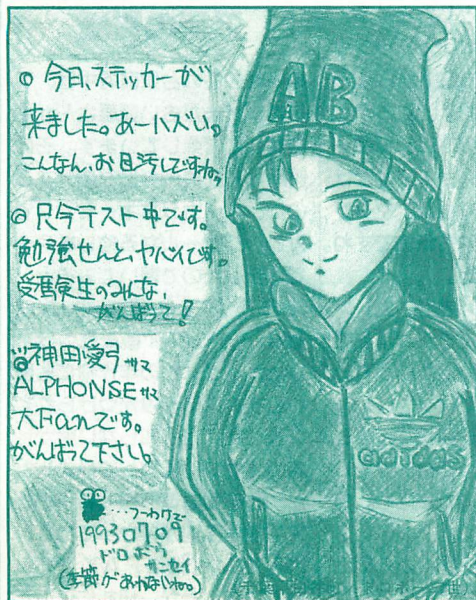 ◎今日、ステッカーが
来ました。あーハズい。
こんなん、お目汚しですわっ
◎只今テスト中です。
勉強せんと、ヤバイです。
受験生のみんな、
がんばって!
◎神田愛弓サマ
ALPHONSEサマ
大Fanです。
がんばって下さい。
…フーわけで
19930709
ドロボウ
サンセイ
(季節があわないわね。)
AB
adidas